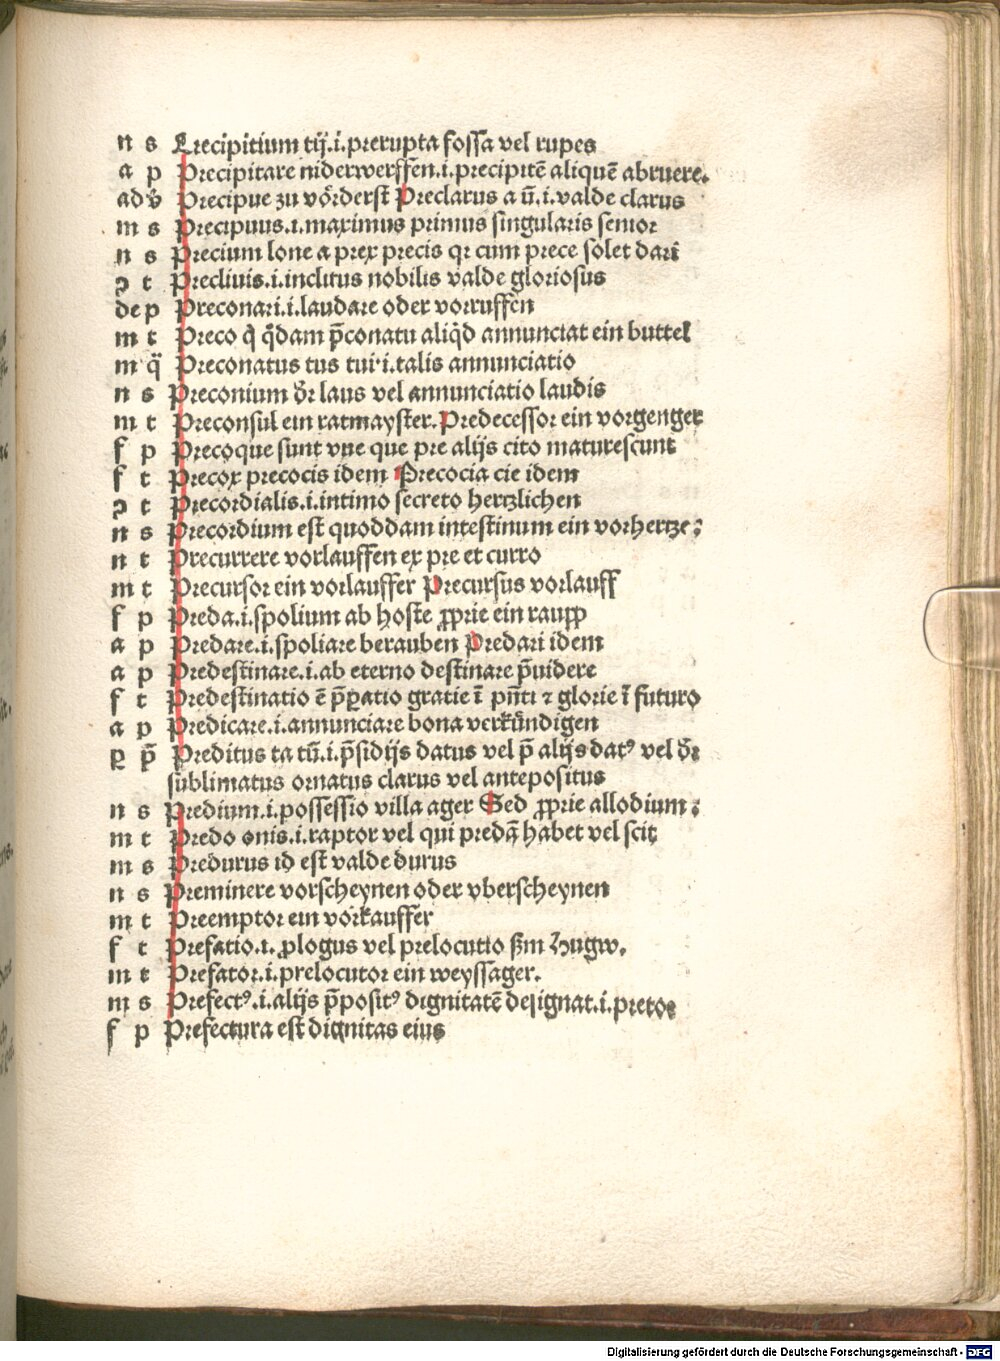 n s Precipitium tij.i.prerupta fossa vel rupes
a p Precipitare niderwerffen.i.precipitē aliquē abruere.
adv̄ Precipue zu vörderst Preclarus a ū.i.valde clarus
m s Precipuus.i.maximus primus singularis senior
n s Precium lone a prex precis qr cum prece solet dari
ꝯ t Precliuis.i.inclitus nobilis valde gloriosus
de p Preconari.i.laudare oder vorruffen
m t Preco q̄ q̄dam p̄conatu aliq̄d annunciat ein buttel
m q̄ Preconatus tus tui·i.talis annunciatio
n s Preconium d̄r laus vel annunciatio laudis
m t Preconsul ein ratmayster. Predecessor ein vorgenger
f p Precoque sunt vue que pre alijs cito maturescunt
f t Precox precocis idem Precocia cie idem
ꝯ t Precordialis.i.intimo secreto hertzlichen
n s Precordium est quoddam intestinum ein vorhertze:
n t Precurrere vorlauffen ex pre et curro
m t Precursor ein vorlauffer Precursus vorlauff
f p Preda.i.spolium ab hoste ꝓprie ein raupp
a p Predare.i.spoliare berauben Predari idem
a p Predestinare.i.ab eterno destinare p̄uidere
f t Predestinatio ē p̄ꝑatio gratie ī pn̄ti ⁊ glorie ī futuro
a p Predicare.i.annunciare bona verkündigen
ꝑ p̄ Preditus ta tū.i.p̄sidijs datus vel p̄ alijs datꝰ vel d̄r
sublimatus ornatus clarus vel antepositus
n s Predium.i.possessio villa ager Sed ꝓprie allodium:
m t Predo onis.i.raptor vel qui predā habet vel scit
m s Predurus id est valde durus
n s Preminere vorscheynen oder vberscheynen
m t Preemptor ein vörkauffer
f t Prefatio.i.ꝓlogus vel prelocutio ẜm Hugw.
m t Prefator.i.prelocutor ein weyssager.
m s Prefectꝰ.i.alijs p̄positꝰ dignitatē designat.i.pretor
f p Prefectura est dignitas eius
Digitalisierung gefördert durch die Deutsche Forschungsgemeinschaft - DFG